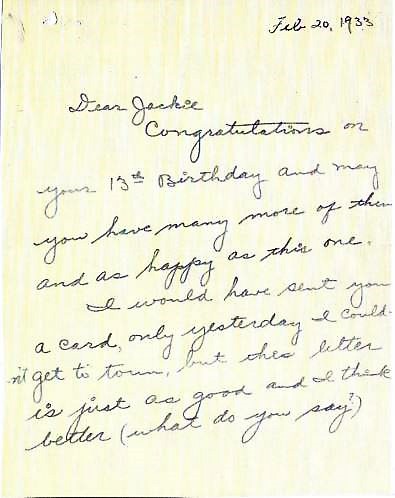 Feb 20, 1933
Dear Jackie
Congratulations on
your 13th Birthday and may
you have many more of them
and as happy as this one.
I would have sent you
a card, only yesterday I could-
n't get to town, but this letter
is just as good and I think
better (what do you say?)